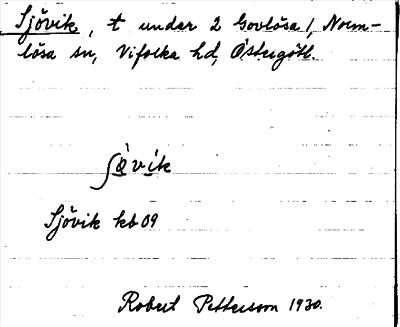 Sjövik, t under 2 Govlösa /, Norm-
lösa sn, Vifolka hd, Östergötl.
ʃö̀vik
Sjövik kb 09
Robert Pettersson 1930.